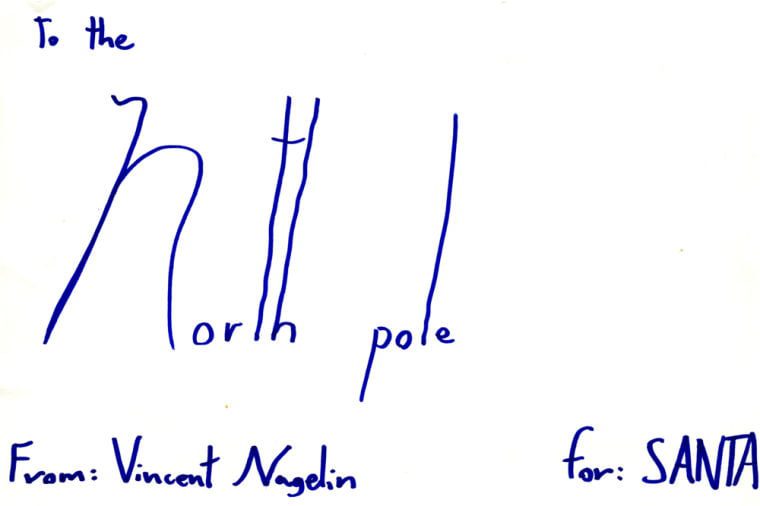 To the
North pole
From: Vincent Nagelin
for: SANTA